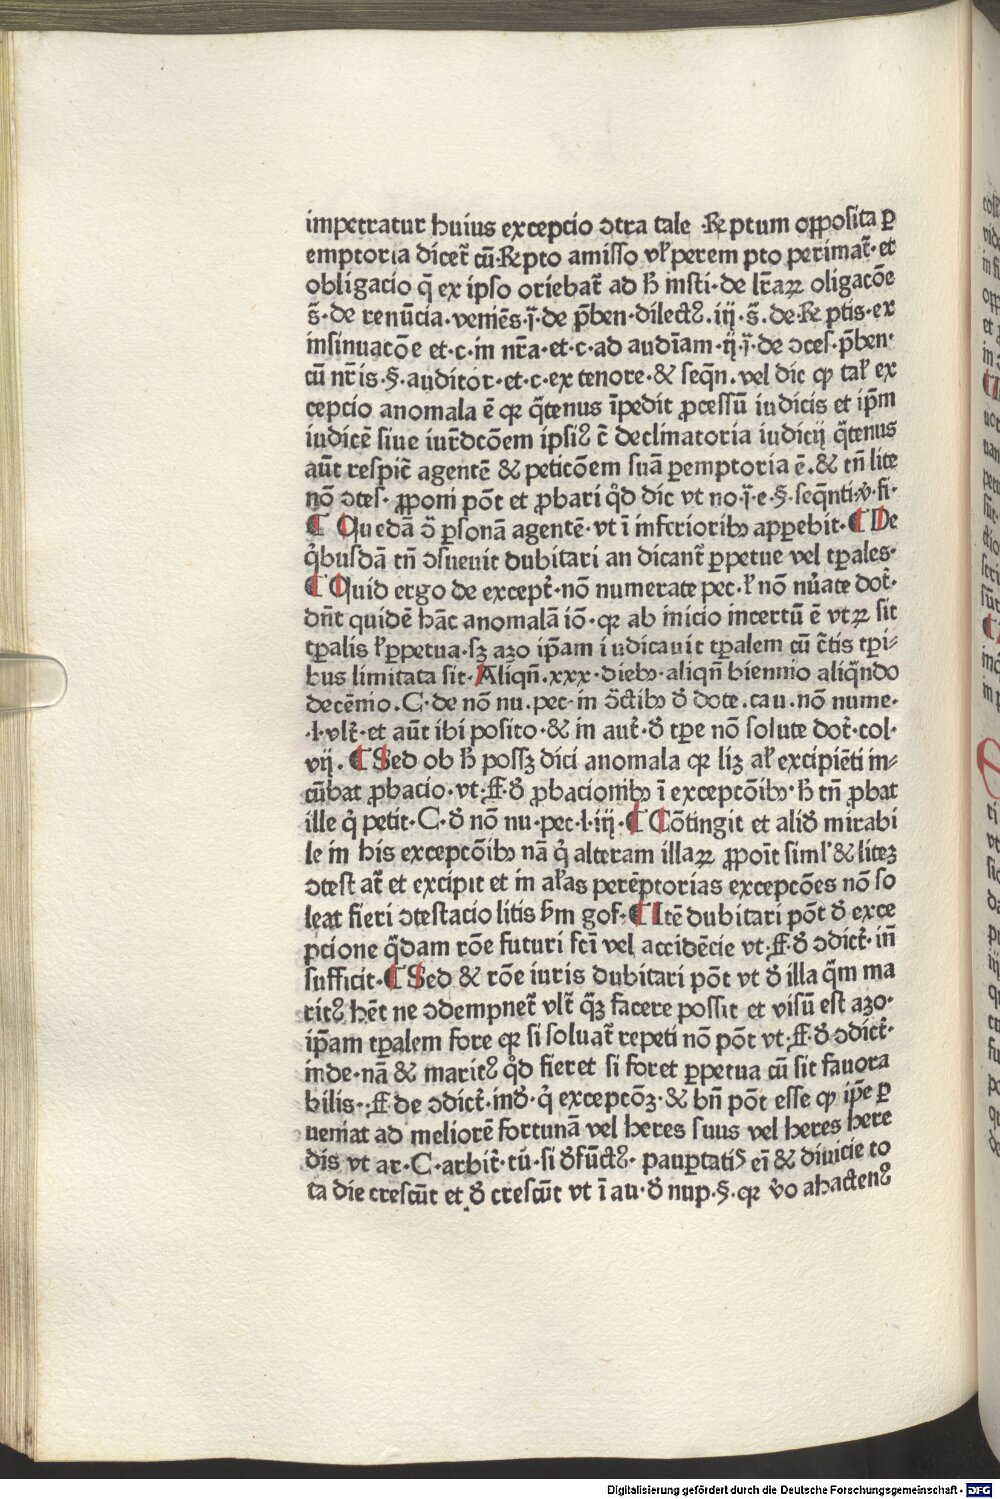 impetratur huius excepcio ↄtra tale ·Re ptum opposita ꝑ
emptoria dicet̄ cū·Repto amisso vł perem pto perimat̄· et
obligacio q̄ ex ipso oriebat̄ ad h̄ insti·de lr̄aꝝ oligacōe
s̄·de renūcia·veniēs·j̄·de p̄ben·dilectꝰ.iij·s̄.de·Re ptis·ex
insinuacōe et·c·in nr̄a·et·c·ad audīam·ij·j̄·de ↄces·p̄ben·
cū nr̄is·§·auditor·et·c·ex tenore·& seqn̄.vel dic ꝙ tał ex
cepcio anomala ē qꝛ q̄tenus īpedit ꝓcessū iudicis et ip̄m
iudicē siue iur̄dcōem ipsiꝰ c̄ declinatoria iudicij q̄tenus
aūt respic̄ agentē & peticōem suā ꝑemptoria ē.& tn̄ lite
nō ↄtes· ꝓponi pōt et ꝓbari qd̄ dic vt no·j̄·e·§·seqn̄ti·v̄·fi·
¶ Quedā ↄ̄ ꝑsonā agentē·vt ī inferioribꝫ apꝑebit·¶ De
q̄busdā tn̄ ↄsueuit dubitari an dicant̄ ꝑpetue vel tꝑales·
¶ Quid ergo de except̄·nō numerate pec·ł nō nūate dot̄·
dn̄t quidē hāc anomalā iō·qꝛ ab inicio incertū ē vtꝝ sit
tꝑalis łꝑpetua·sꝫ azo ip̄am iudicauit tꝑalem cū c̄tis tꝑi⸗
bus limitata sit·Aliqn̄.xxx·diebꝫ·aliqn̄ biennio aliqn̄do
decēnio.C·de nō nu.pec·in ↄ̄ctibꝫ đ dote.cau.nō nume·
·l·vlt̄·et aūt ibi posito·& in aut̄·đ tꝑe nō solute dot̄·col·
vij.¶ Sed ob h̄ possꝫ dici anomala qꝛ liꝫ ał excipiēti in⸗
cūbat ꝓbacio·vt·ff·đ ꝓbacionibꝫ ī excepcōibꝫ·h̄ tn̄ ꝓbat
ille q̄ petit·C·đ nō nu·pec·l·iij·¶ Cōtingit et aliđ mirabi
le in his excepcōibꝫ nā q̄ alteram illaꝝ ꝓpoīt siml̄ & liteꝫ
ↄtest at̄ et excipit et in ałas perēptorias excepcōes nō so
leat fieri ↄtestacio litis h̄m gof·¶ Itē dubitari pōt đ exce
pcione q̄dam rōe futuri fcī vel accidēcie vt·ff·đ ↄdict̄· in̄
sufficit·¶ Sed & rōe iuris dubitari pōt vt đ illa q̄m ma
ritꝰ hēt ne ↄdempnet̄ vlt̄ q̄ꝫ facere possit et visū est azo·
ip̄am tꝑalem fore qꝛ si soluat̄ repeti nō pōt vt·ff·đ ↄdict̄·
inde·nā & maritꝰ qd̄ fieret si foret ꝑpetua cū sit fauora
bilis·ff de ↄdict̄·inđ·q̄ excepcōꝫ·& bn̄ pōt esse ꝙ ip̄e ꝑ
ueniat ad meliorē fortunā vel heres suus vel heres here
dis vt ar·C·arbit̄·tū·si đfūctꝰ· pauꝑtatiꝰ eī & diuicie to
ta die crescūt et đ crescūt vt ī au·đ nup·§·qꝛ v̄o ahactenꝰ
Digitalisierung gefördert durch die Deutsche Forschungsgemeinschaft - DFG